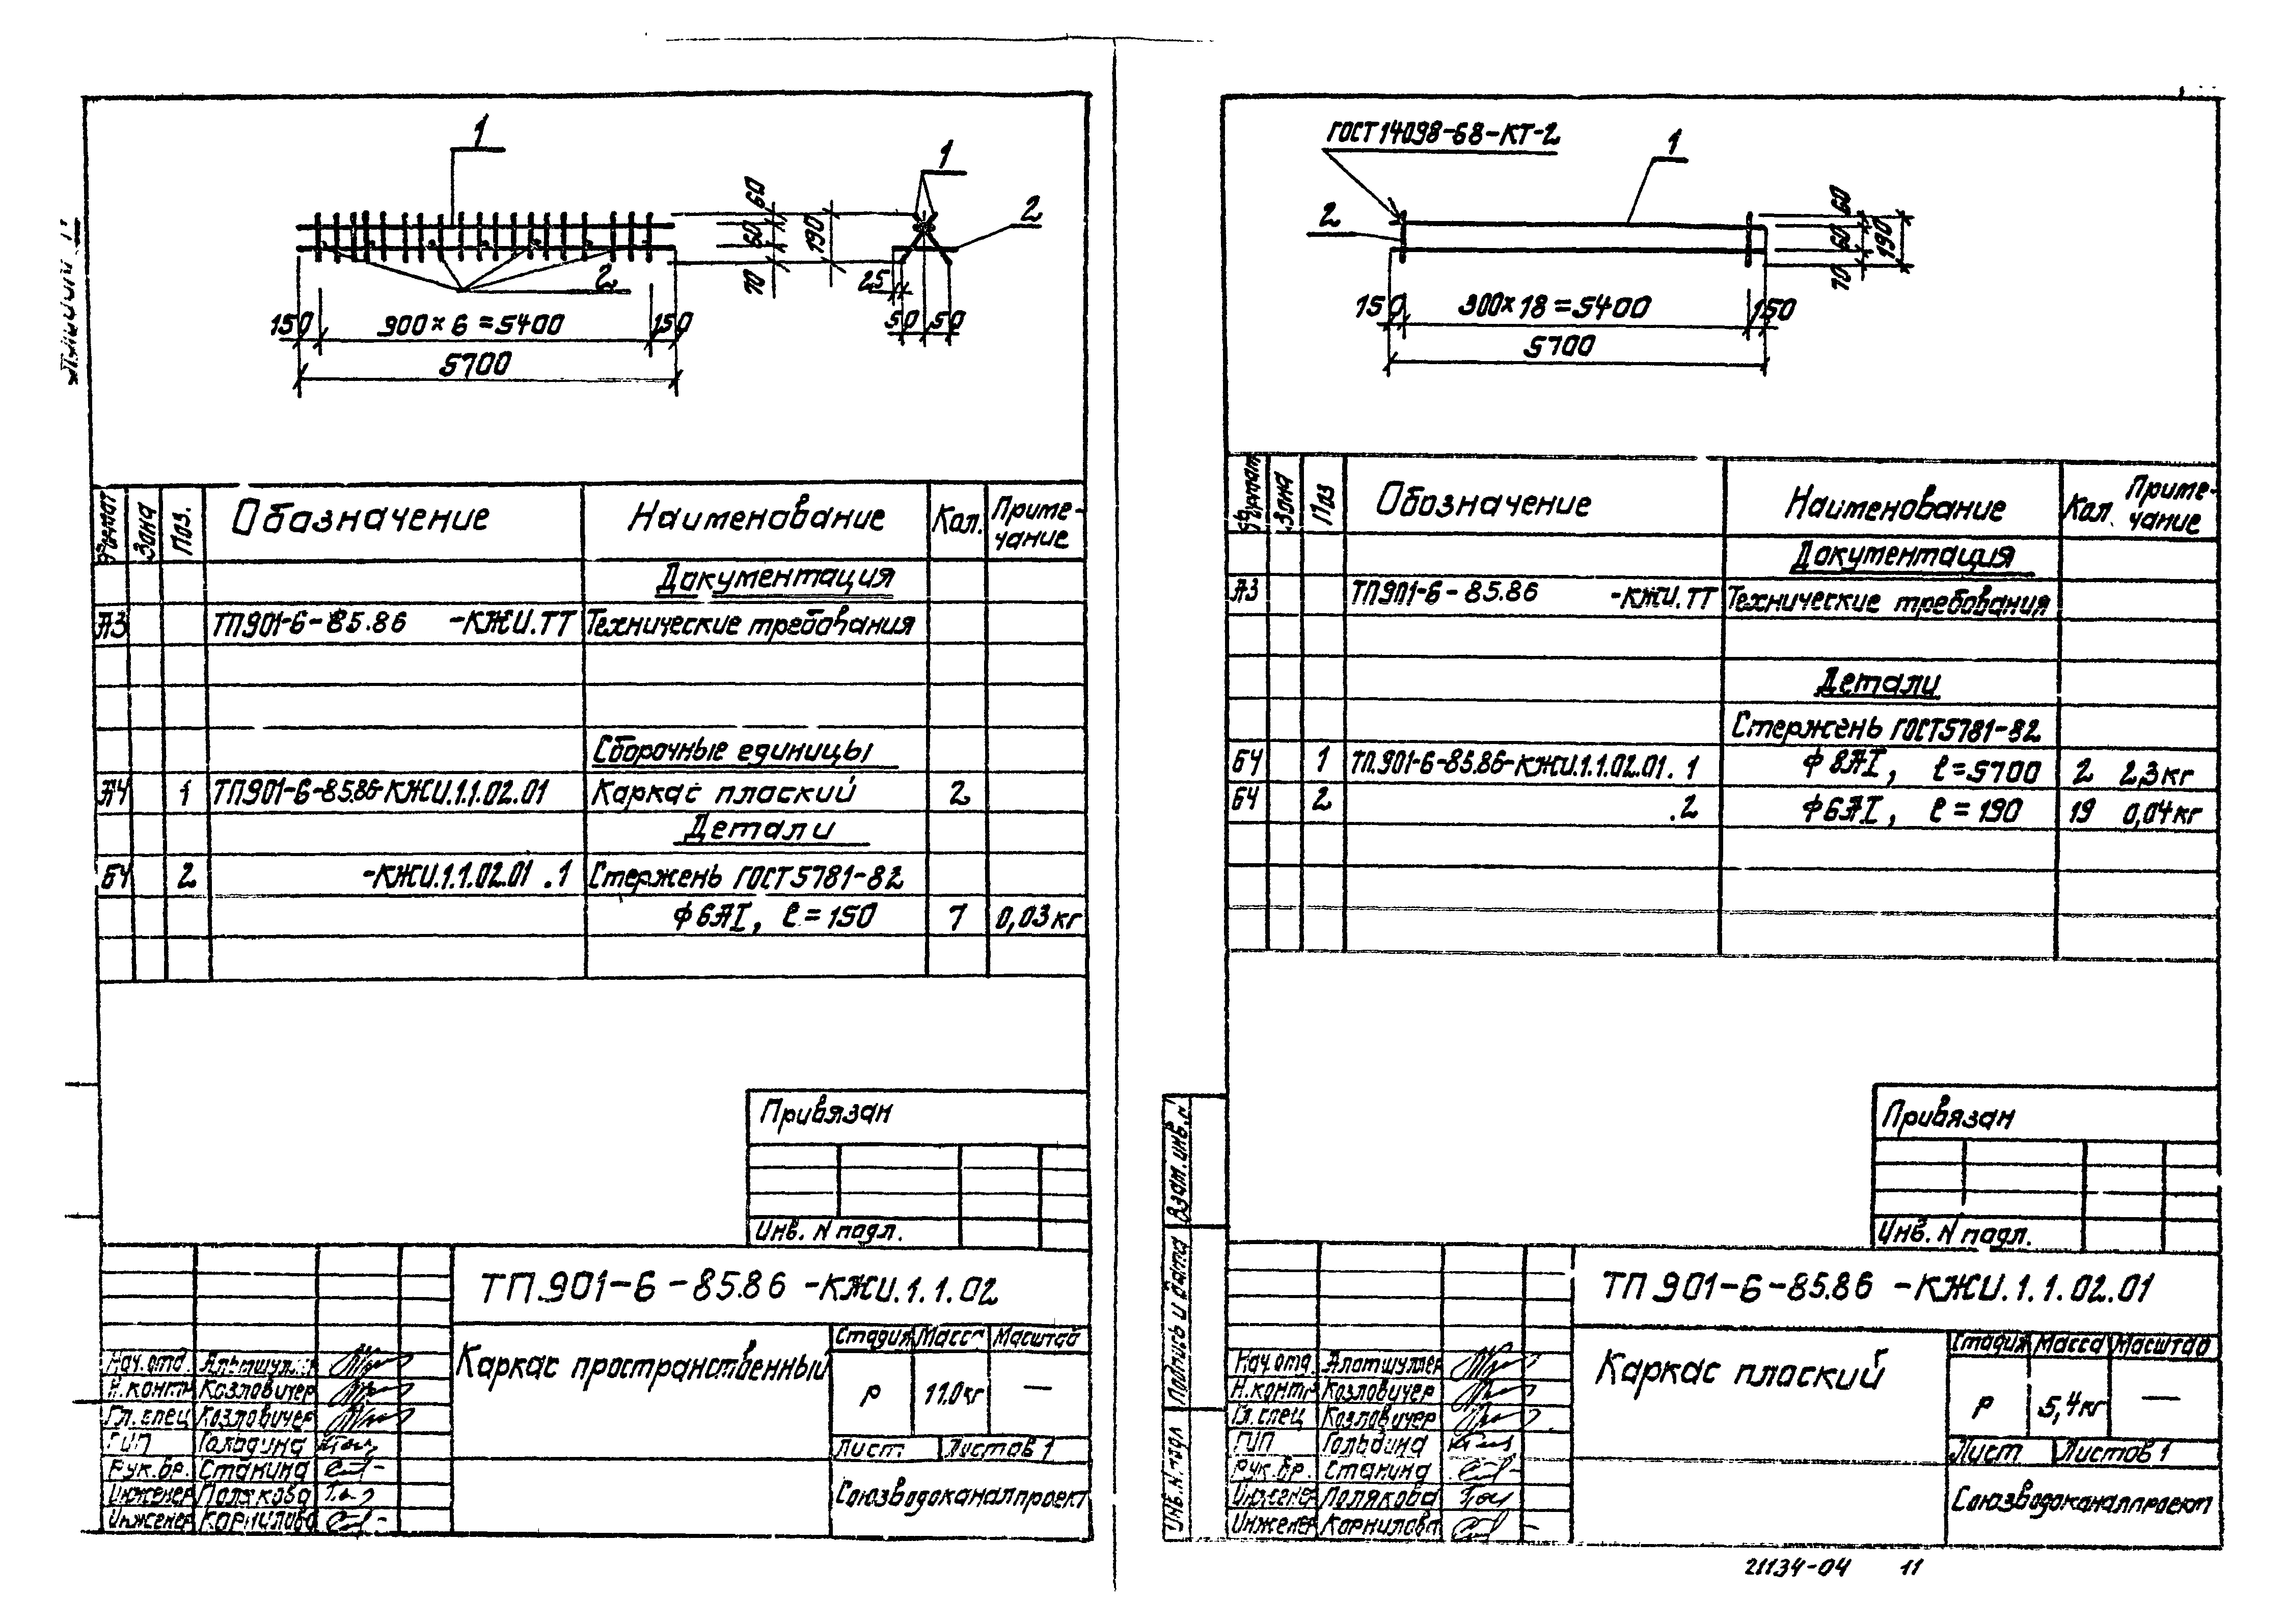 1
1
2
60
60
190
70
2
25
150
900 × 6 = 5400
150
50
50
5700
Формат
Зона
Поз.
Обозначение
Наименование
Кол.
Приме-
чание
Документация
А3
ТП901-6-85.86 -КЖИ.ТТ
Технические требования
Сборочные единицы
А4
1
ТП901-6-85.86-КЖИ.1.1.02.01
Каркас плоский
2
Детали
БЧ
2
-КЖИ.1.1.02.01 .1
Стержень ГОСТ5781-82
ф6АI, ℓ = 150
7
0,03кг
Привязан
Инв. N подл.
ТП.901-6-85.86 -КЖИ.1.1.02
Каркас пространственный
Стадия
Масса
Масштаб
Р
11.0кг
—
Лист
Листов 1
Союзводоканалпроект
Нач.отд.
Альтшуллер
Н.контр
Козловичер
Гл.спец
Козловичер
ГИП
Гольдина
Рук.бр.
Станина
Инженер
Полякова
Инженер
Корнилова
ГОСТ14098-68-КТ-2
1
2
60
60
190
70
150
300×18 = 5400
150
5700
Формат
Зона
Поз
Обозначение
Наименование
Кол.
Приме-
чание
Документация
А3
ТП901-6-85.86 -КЖИ.ТТ
Технические требования
Детали
Стержень ГОСТ5781-82
БЧ
1
ТП.901-6-85.86-КЖИ.1.1.02.01. 1
ф 8АI, ℓ = 5700
2
2,3кг
БЧ
2
.2
ф6АI, ℓ = 190
19
0,04кг
Привязан
Инв. N подл.
Взам.инв.N
Подпись и дата
Инв.N.подл
ТП.901-6-85.86 -КЖИ.1.1.02.01
Каркас плоский
Стадия
Масса
Масштаб
Р
5,4кг
—
Лист
Листов 1
Союзводоканалпроект
Нач.отд.
Альтшуллер
Н.контр
Козловичер
Гл.спец
Козловичер
ГИП
Гольдина
Рук.бр.
Станина
Инженер
Полякова
Инженер
Корнилова
21134-04 11